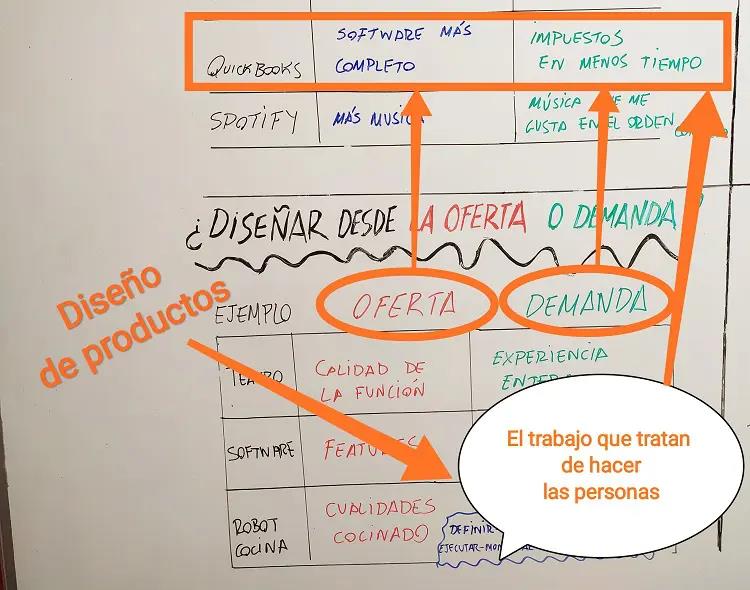 SOFTWARE MÁS
COMPLETO
IMPUESTOS
EN MENOS TIEMPO
QUICKBOOKS
SPOTIFY
MÁS
MÚSICA ME
GUSTA EN EL ORDEN
¿DISEÑAR DESDE LA OFERTA O DEMANDA?
Diseño
de productos
EJEMPLO
OFERTA
DEMANDA
TEATRO
CALIDAD DE
LA FUNCIÓN
EXPERIENCIA
SOFTWARE
FEATURES
El trabajo que tratan
de hacer
las personas
ROBOT
COCINA
CUALIDADES
COCINADO
DEFINIR
EJECUTAR-